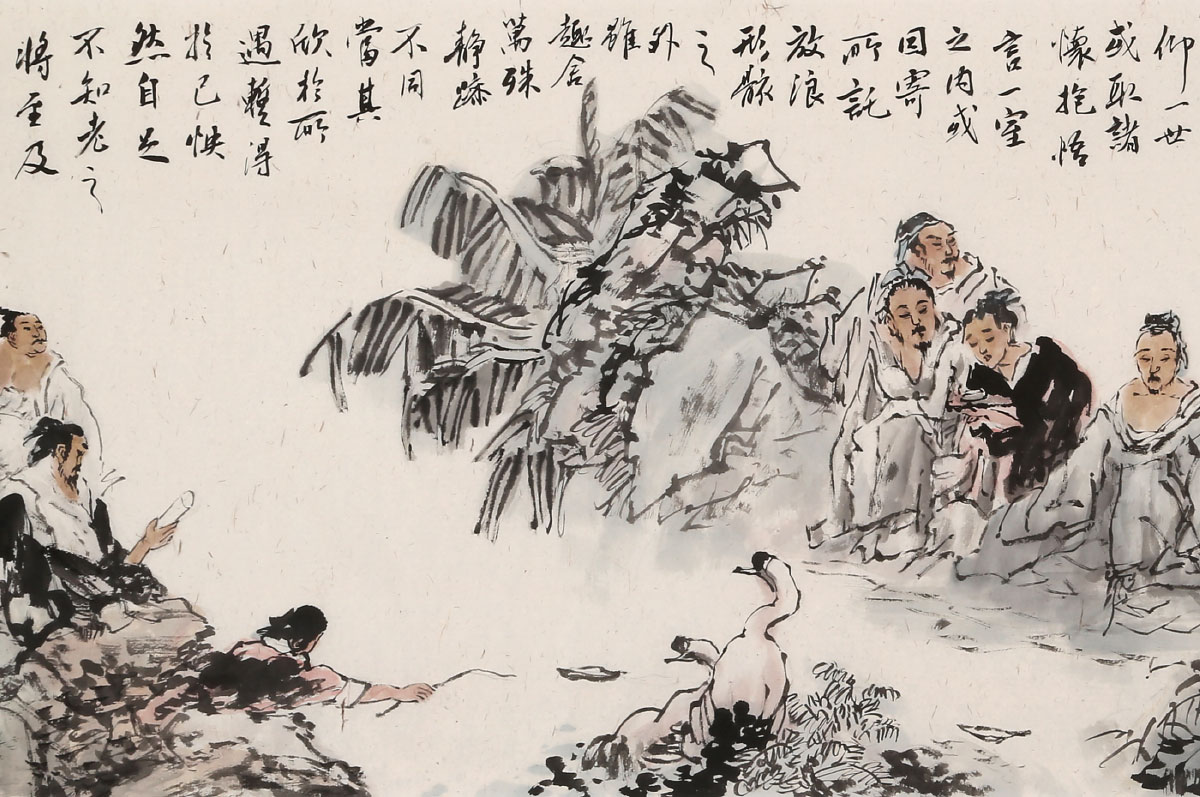 仰一世
或取諸
懷抱悟
言一室
之內或
因寄
所託
放浪
形骸
之
外
雖
趣舍
萬殊
靜躁
不同
當其
欣於所
遇暫得
於己怏
然自足
不知老之
將至及